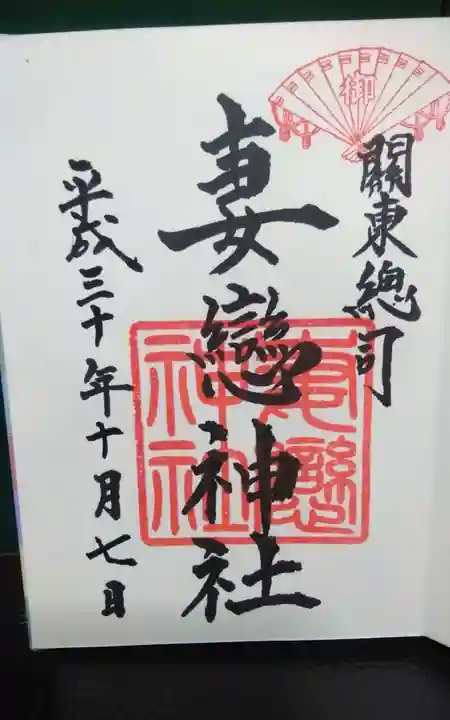 御
關東總司
妻戀神社
妻戀
神社
平成三十年十月七日